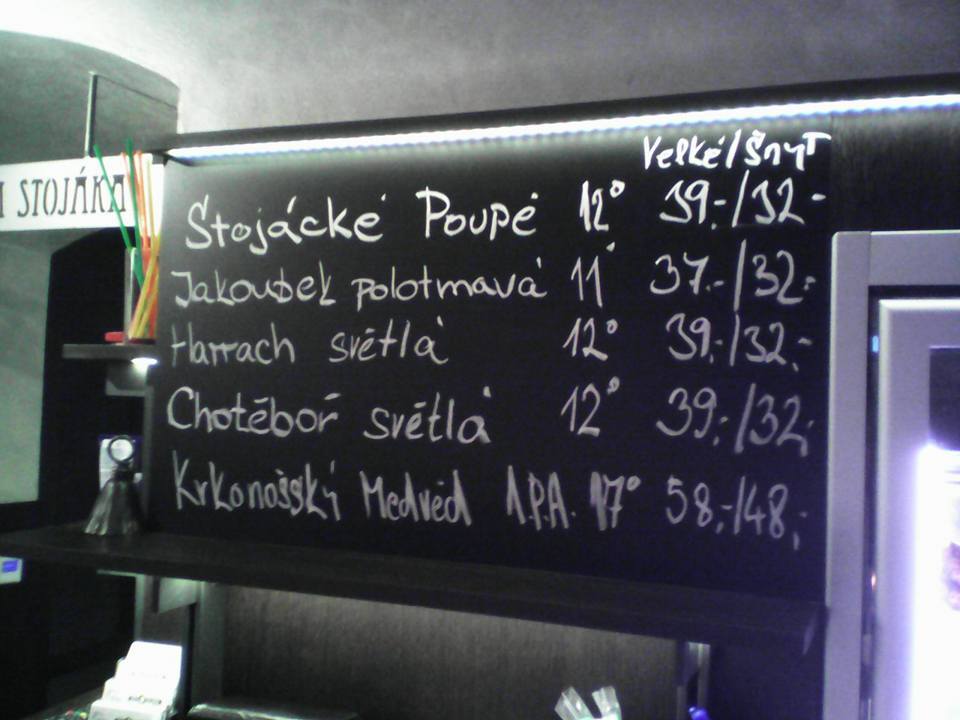 Velké/Šnyt
STOJÁKA
Stojácké Poupě 12° 39,-/32,-
Jakoubek polotmavá 11° 37,-/32,-
Harrach světlá 12° 39,-/32,-
Chotěboř světlá 12° 39,-/32,-
Krkonošský Medvěd I.P.A. 17° 58,-/48,-